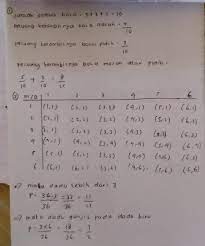 ① jumlah semua bola = 5+3+2 = 10
peluang terambilnya bola merah = 5/10
peluang terambilnya bola putih = 3/10
peluang terambilnya bola merah atau putih =
5/10 + 3/10 = 8/10
② m/b 1 2 3 4 5 6
1 (1,1) (2,1) (3,1) (4,1) (5,1) (6,1)
2 (1,2) (2,2) (3,2) (4,2) (5,2) (6,2)
3 (1,3) (2,3) (3,3) (4,3) (5,3) (6,3)
4 (1,4) (2,4) (3,4) (4,4) (5,4) (6,4)
5 (1,5) (2,5) (3,5) (4,5) (5,5) (6,5)
6 (1,6) (2,6) (3,6) (4,6) (5,6) (6,6)
mata dadu lebih dari 3
P =
mata dadu ganjil pada dadu biru
P = 3×6/36 = 18/36 = 1/2